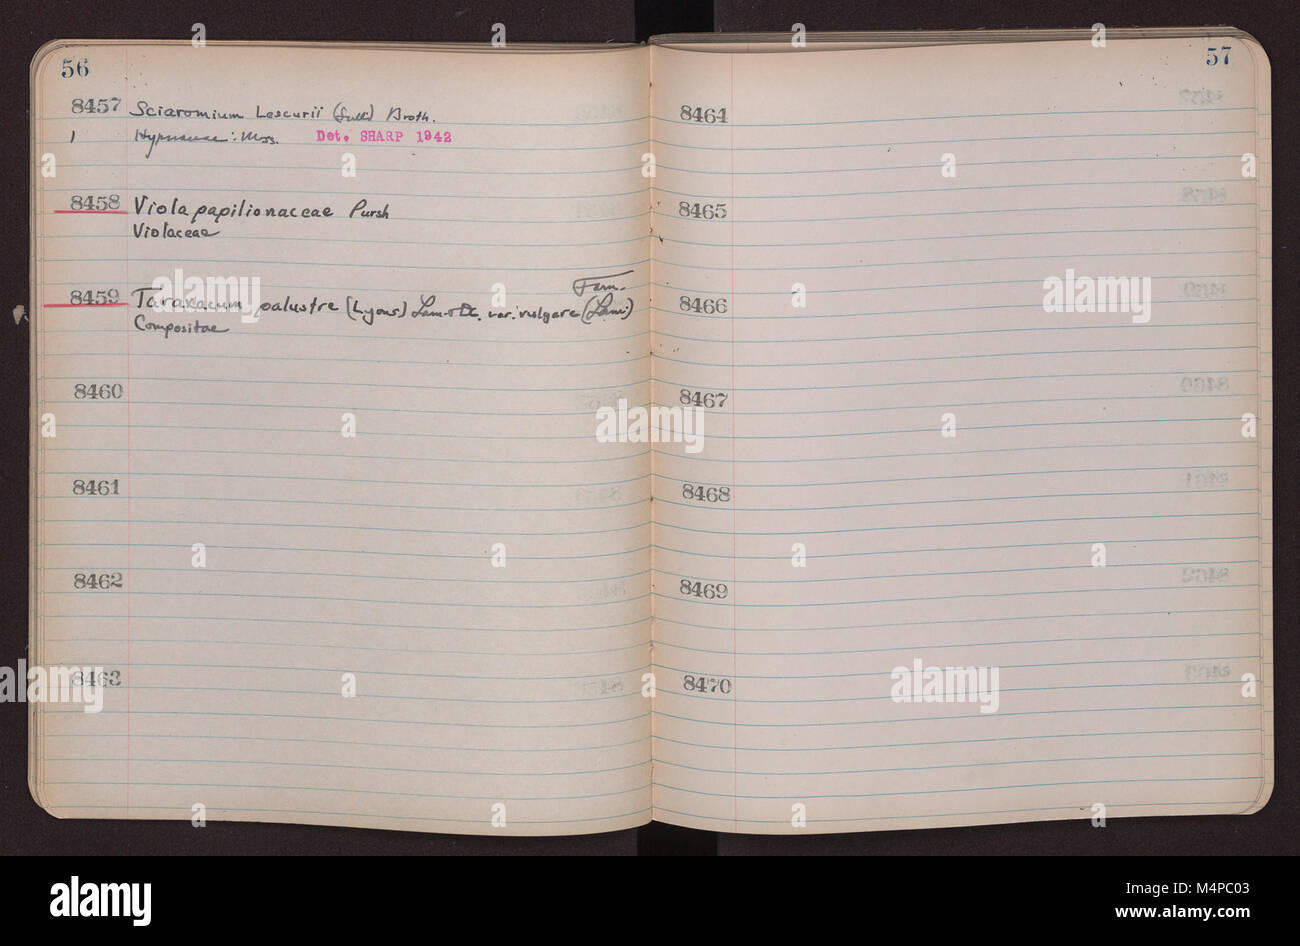 56
8457 Sciaromium Lescurii (Sull.) Broth.
1 Hypnaceae: Moss. Det. SHARP 1942
8458 Viola papilionaceae Pursh
Violaceae
Farw.
8459 Taraxacum palustre (Lyons) Lam & DC. var. vulgare (Lam.)
Compositae
8460
8461
8462
8463
57
8464
8465
8466
8467
8468
8469
8470
alamy
a
alamy
Image ID: M4PC03
www.alamy.com